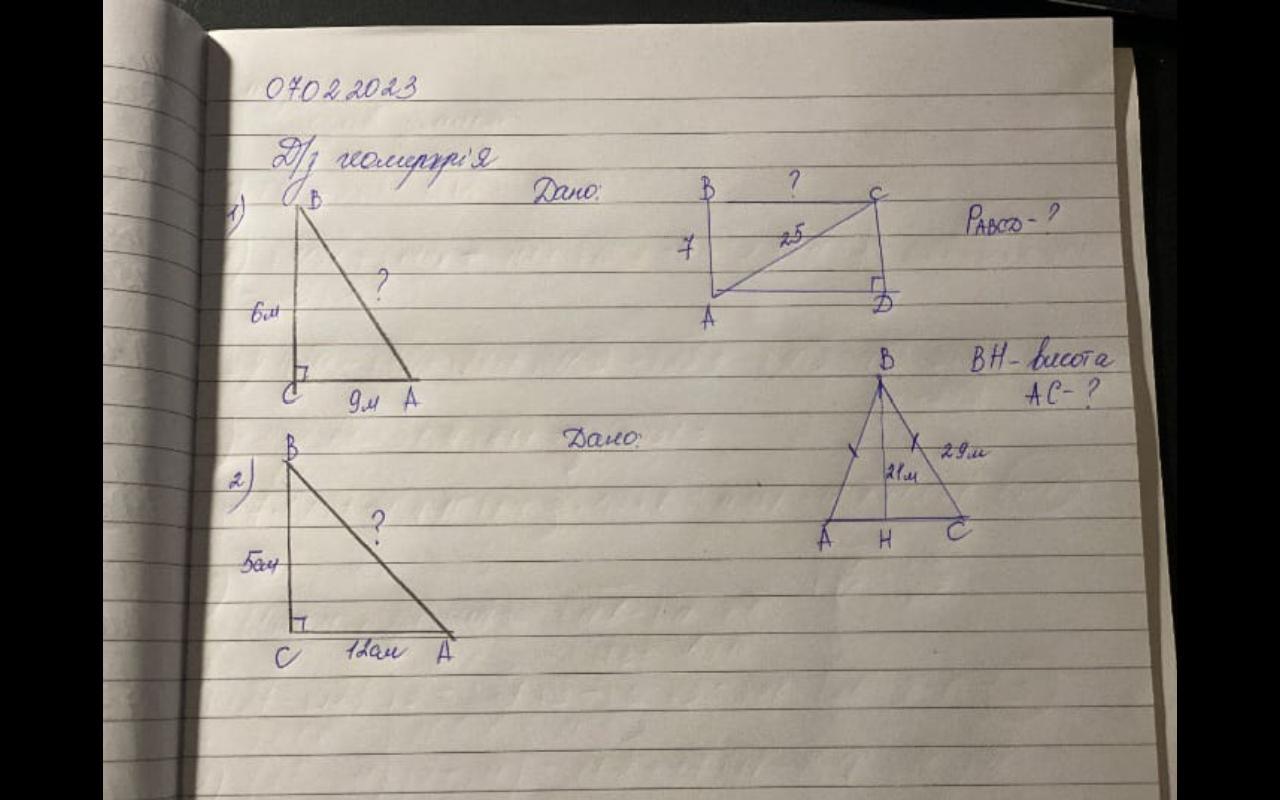 07022023
Д/з геометрія
1)
B
6м
?
C
9м
A
Дано:
B
?
C
7
25
A
D
PABCD-?
2)
B
5см
?
C
12см
A
Дано:
B
21м
29м
A
H
C
BH- висота
AC-?